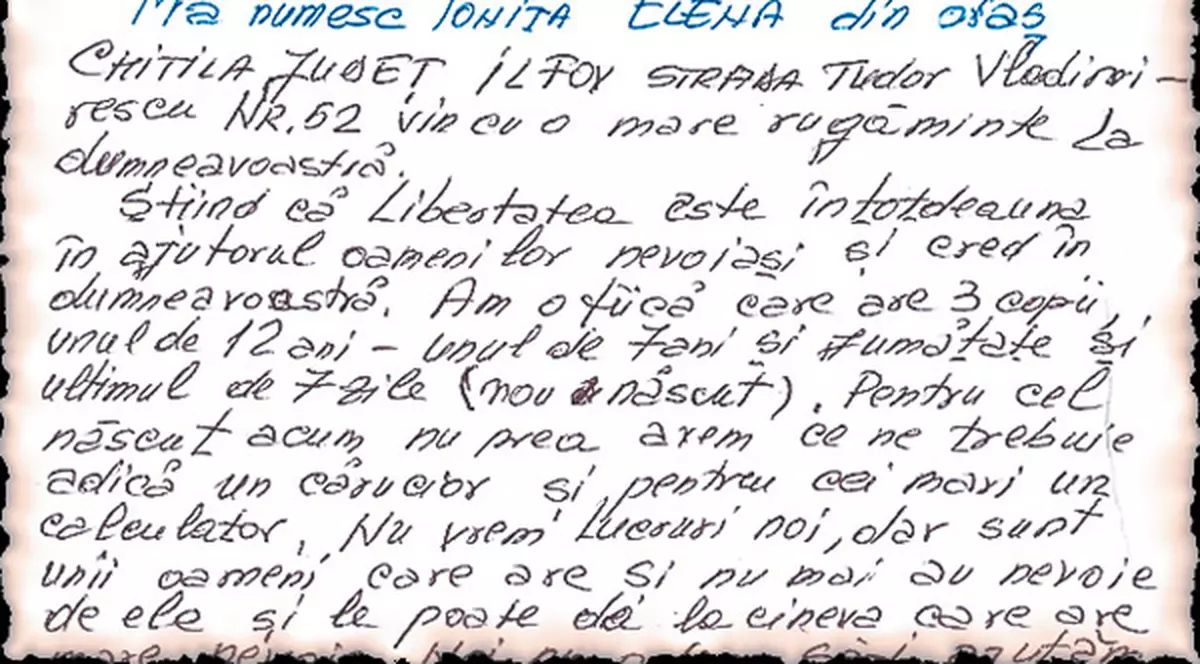 Mă numesc IONIȚA ELENA din oraș
CHITILA, JUDEȚ ILFOV STRADA Tudor Vladimi-
rescu NR. 52 vin cu o mare rugăminte La
dumneavoastră.
Știind că Libertatea este întotdeauna
în ajutorul oamenilor nevoiași și cred în
dumneavoastră. Am o fiică care are 3 copii,
unul de 12 ani - unul de 7 ani și jumătate și
ultimul de 7 zile (nou născut). Pentru cel
născut acum nu prea avem ce ne trebuie
adică un cărucior și pentru cei mari un
calculator. Nu vrem Lucruri noi, dar sunt
unii oameni care are și nu mai au nevoie
de ele și le poate da la cineva care are
mare nevoie